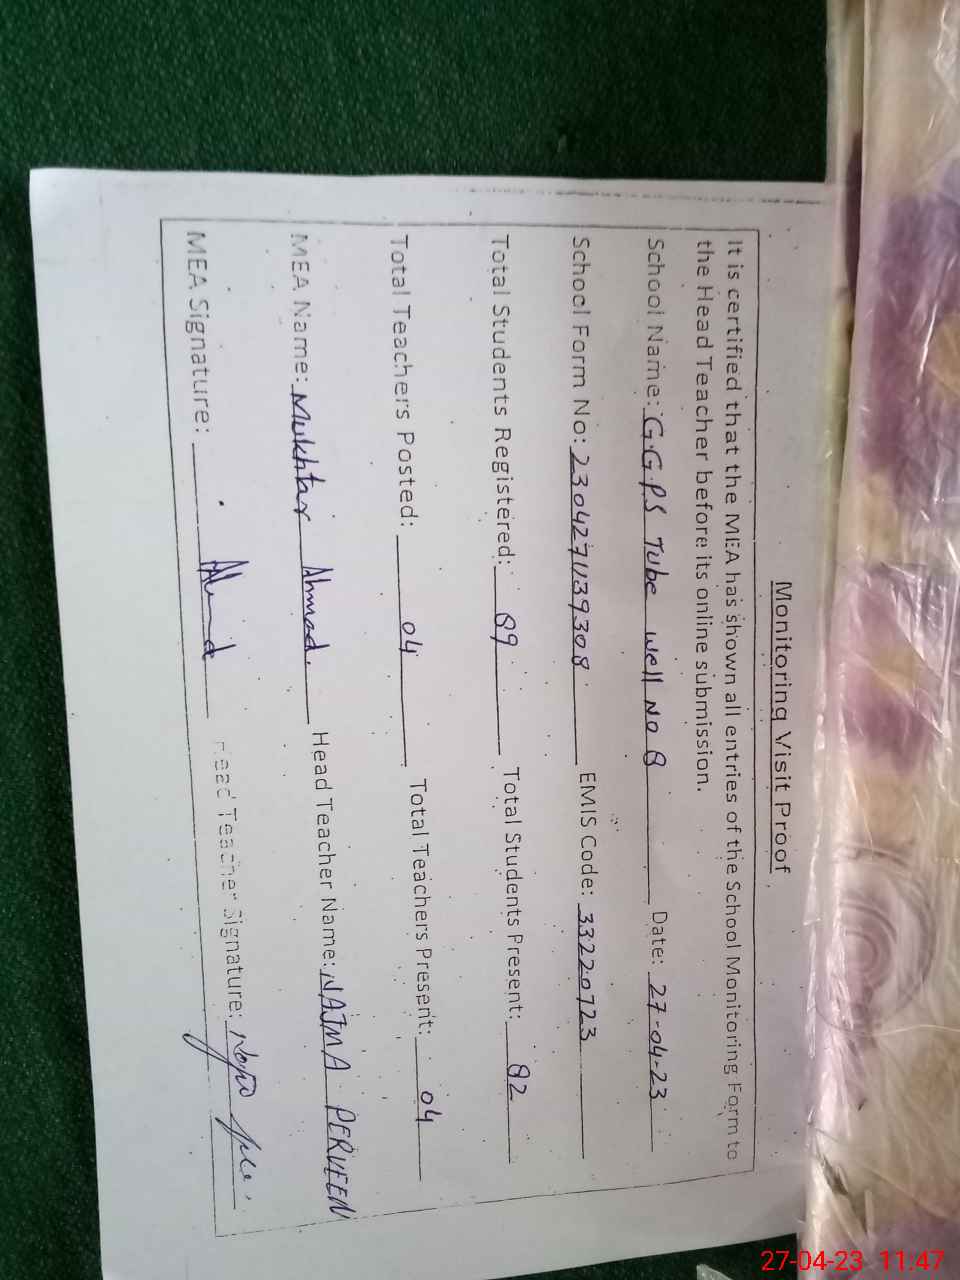 Monitoring Visit Proof
It is certified that the MEA has shown all entries of the School Monitoring Form to
the Head Teacher before its online submission.
School Name: G.G.P.S Tube well No 8 Date: 27-04-23
School Form No: 230427U39308 EMIS Code: 33220723
Total Students Registered: 89 Total Students Present: 82
Total Teachers Posted: 04 Total Teachers Present: 04
MEA Name: Mukhtar Ahmad. Head Teacher Name: NAJMA PERVEEN
MEA Signature: Head Teacher Signature:
27-04-23 11:47